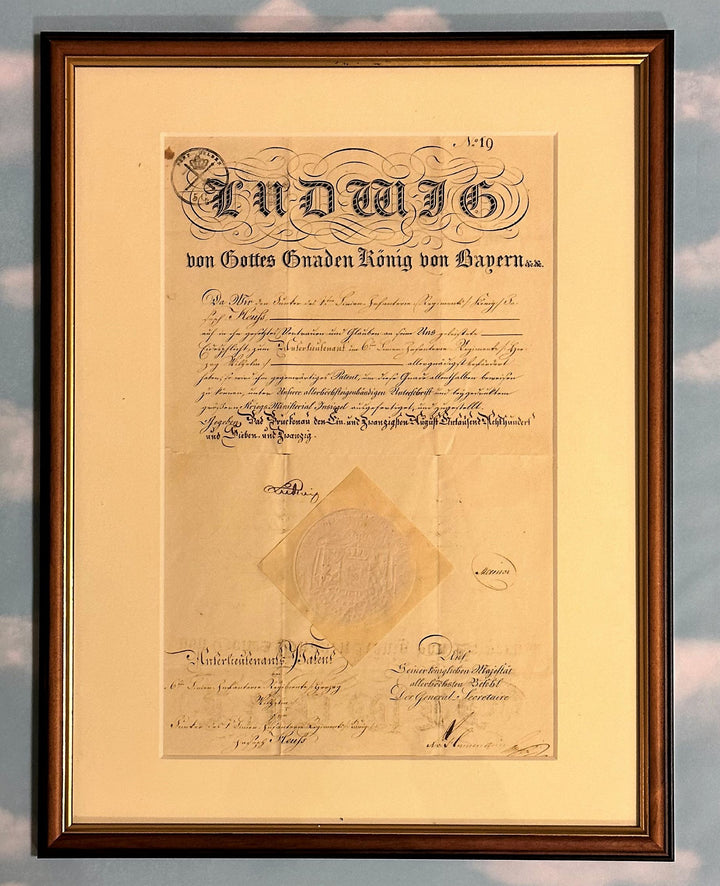 No 19
LUDWIG
von Gottes Gnaden König von Bayern &c. &c.
Da Wir den Junker des 1ten Linien-Infanterie-Regiments König Jo-
seph Meuß
auf die
Uns geleistete
zum Unterlieutenant im 6ten Linien-Infanterie-Regimente Her-
zog Wilhelm allergnädigst befördert
haben, so wird ihm gegenwärtiges Patent, um diese Gnade allenthalben beweisen
zu können unter Unserer allerhöchsteigenhändigen Unterschrift und beygedrucktem
größeren Kriegs-Ministerial-Insiegel ausgefertiget, und zugestellt.
Gegeben Bad Brückenau den Ein und Zwanzigsten August Eintausend Achthundert
und Sieben und Zwanzig.
Ludwig
Unterlieutenants Patent
6ten Linien-Infanterie-Regimente Herzog
Wilhelm
Junker des 1ten Linien-Infanterie-Regiments König
Joseph Meuß
Auf
Seiner königlichen Majestät
allerhöchsten Befehl
Der General-Secretaire